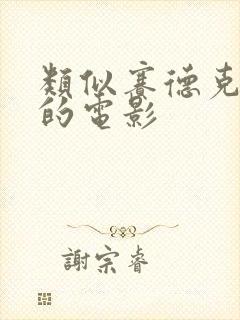 類似賽德克
的電影
謝宗睿